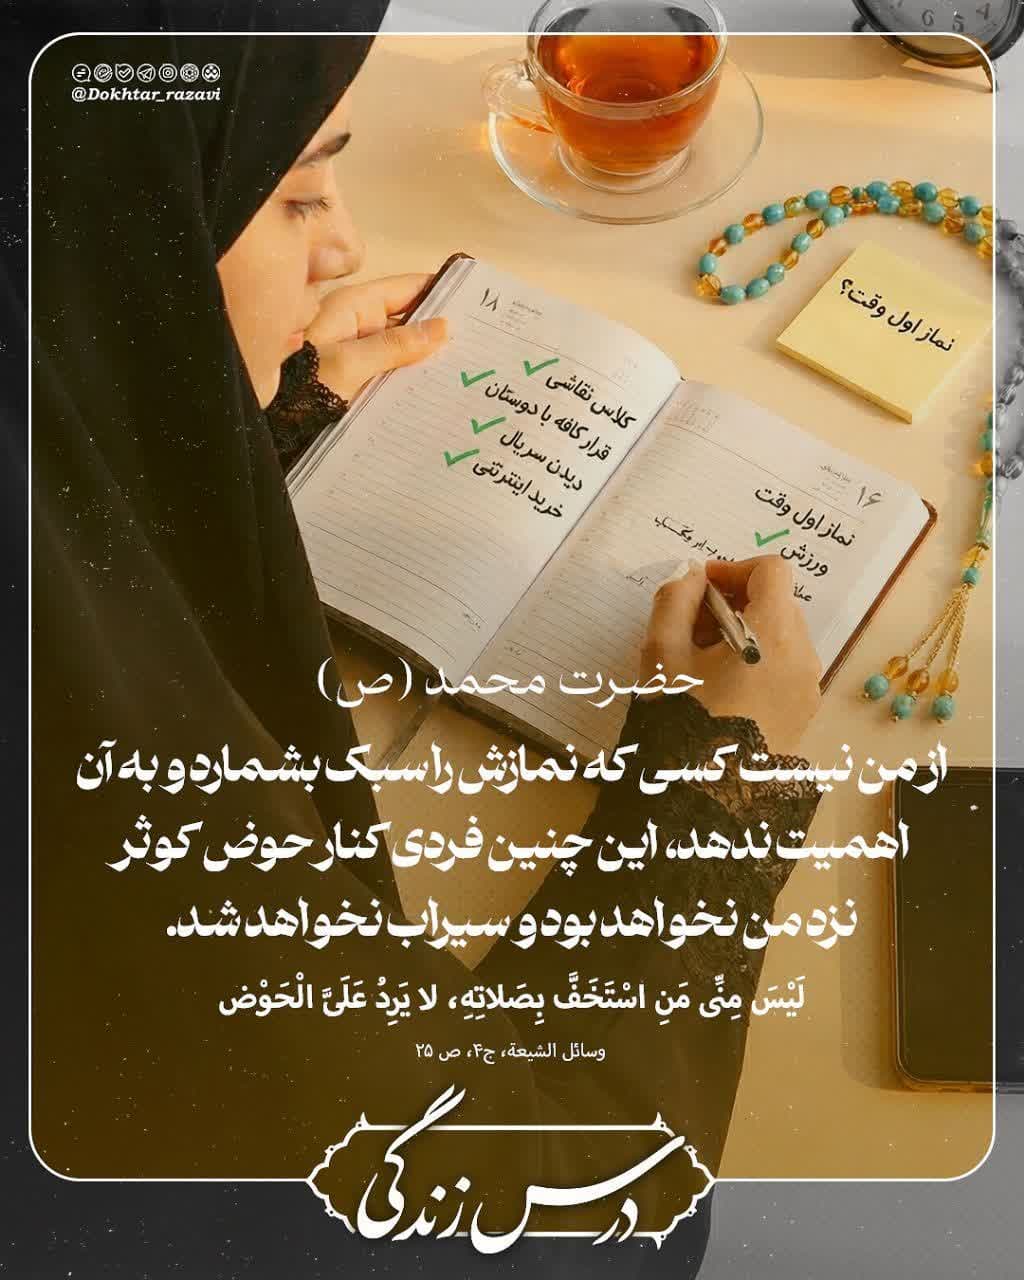 @Dokhtar_razavi
نماز اول وقت؟
۱۸
کلاس نقاشی
قرار کافه با دوستان
دیدن سریال
خرید اینترنتی
۱۶
نماز اول وقت
ورزش
حضرت محمد (ص)
از من نیست کسی که نمازش را سبک بشمارد و به آن
اهمیت ندهد، این چنین فردی کنار حوض کوثر
نزد من نخواهد بود و سیراب نخواهد شد.
لَیْسَ مِنِّی مَنِ اسْتَخَفَّ بِصَلاتِهِ، لا یَرِدُ عَلَیَّ الْحَوْض
وسائل الشیعة، ج۴، ص ۲۵
درس زندگی